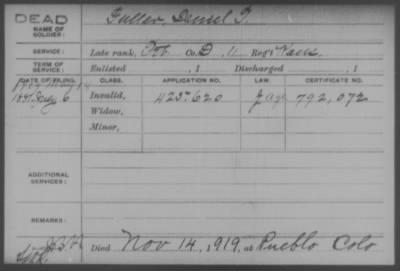 DEAD
NAME OF SOLDIER:
Fuller, Daniel T.
SERVICE:
Late rank, Co. D 11 Reg't Kans
TERM OF SERVICE:
Enlisted , 1 Discharged , 1
DATE OF FILING. CLASS. APPLICATION NO. LAW. CERTIFICATE NO.
1881 July 6 Invalid, 425.620 792,072
Widow,
Minor,
ADDITIONAL SERVICES:
REMARKS:
Died Nov 14, 1919, at Pueblo Colo